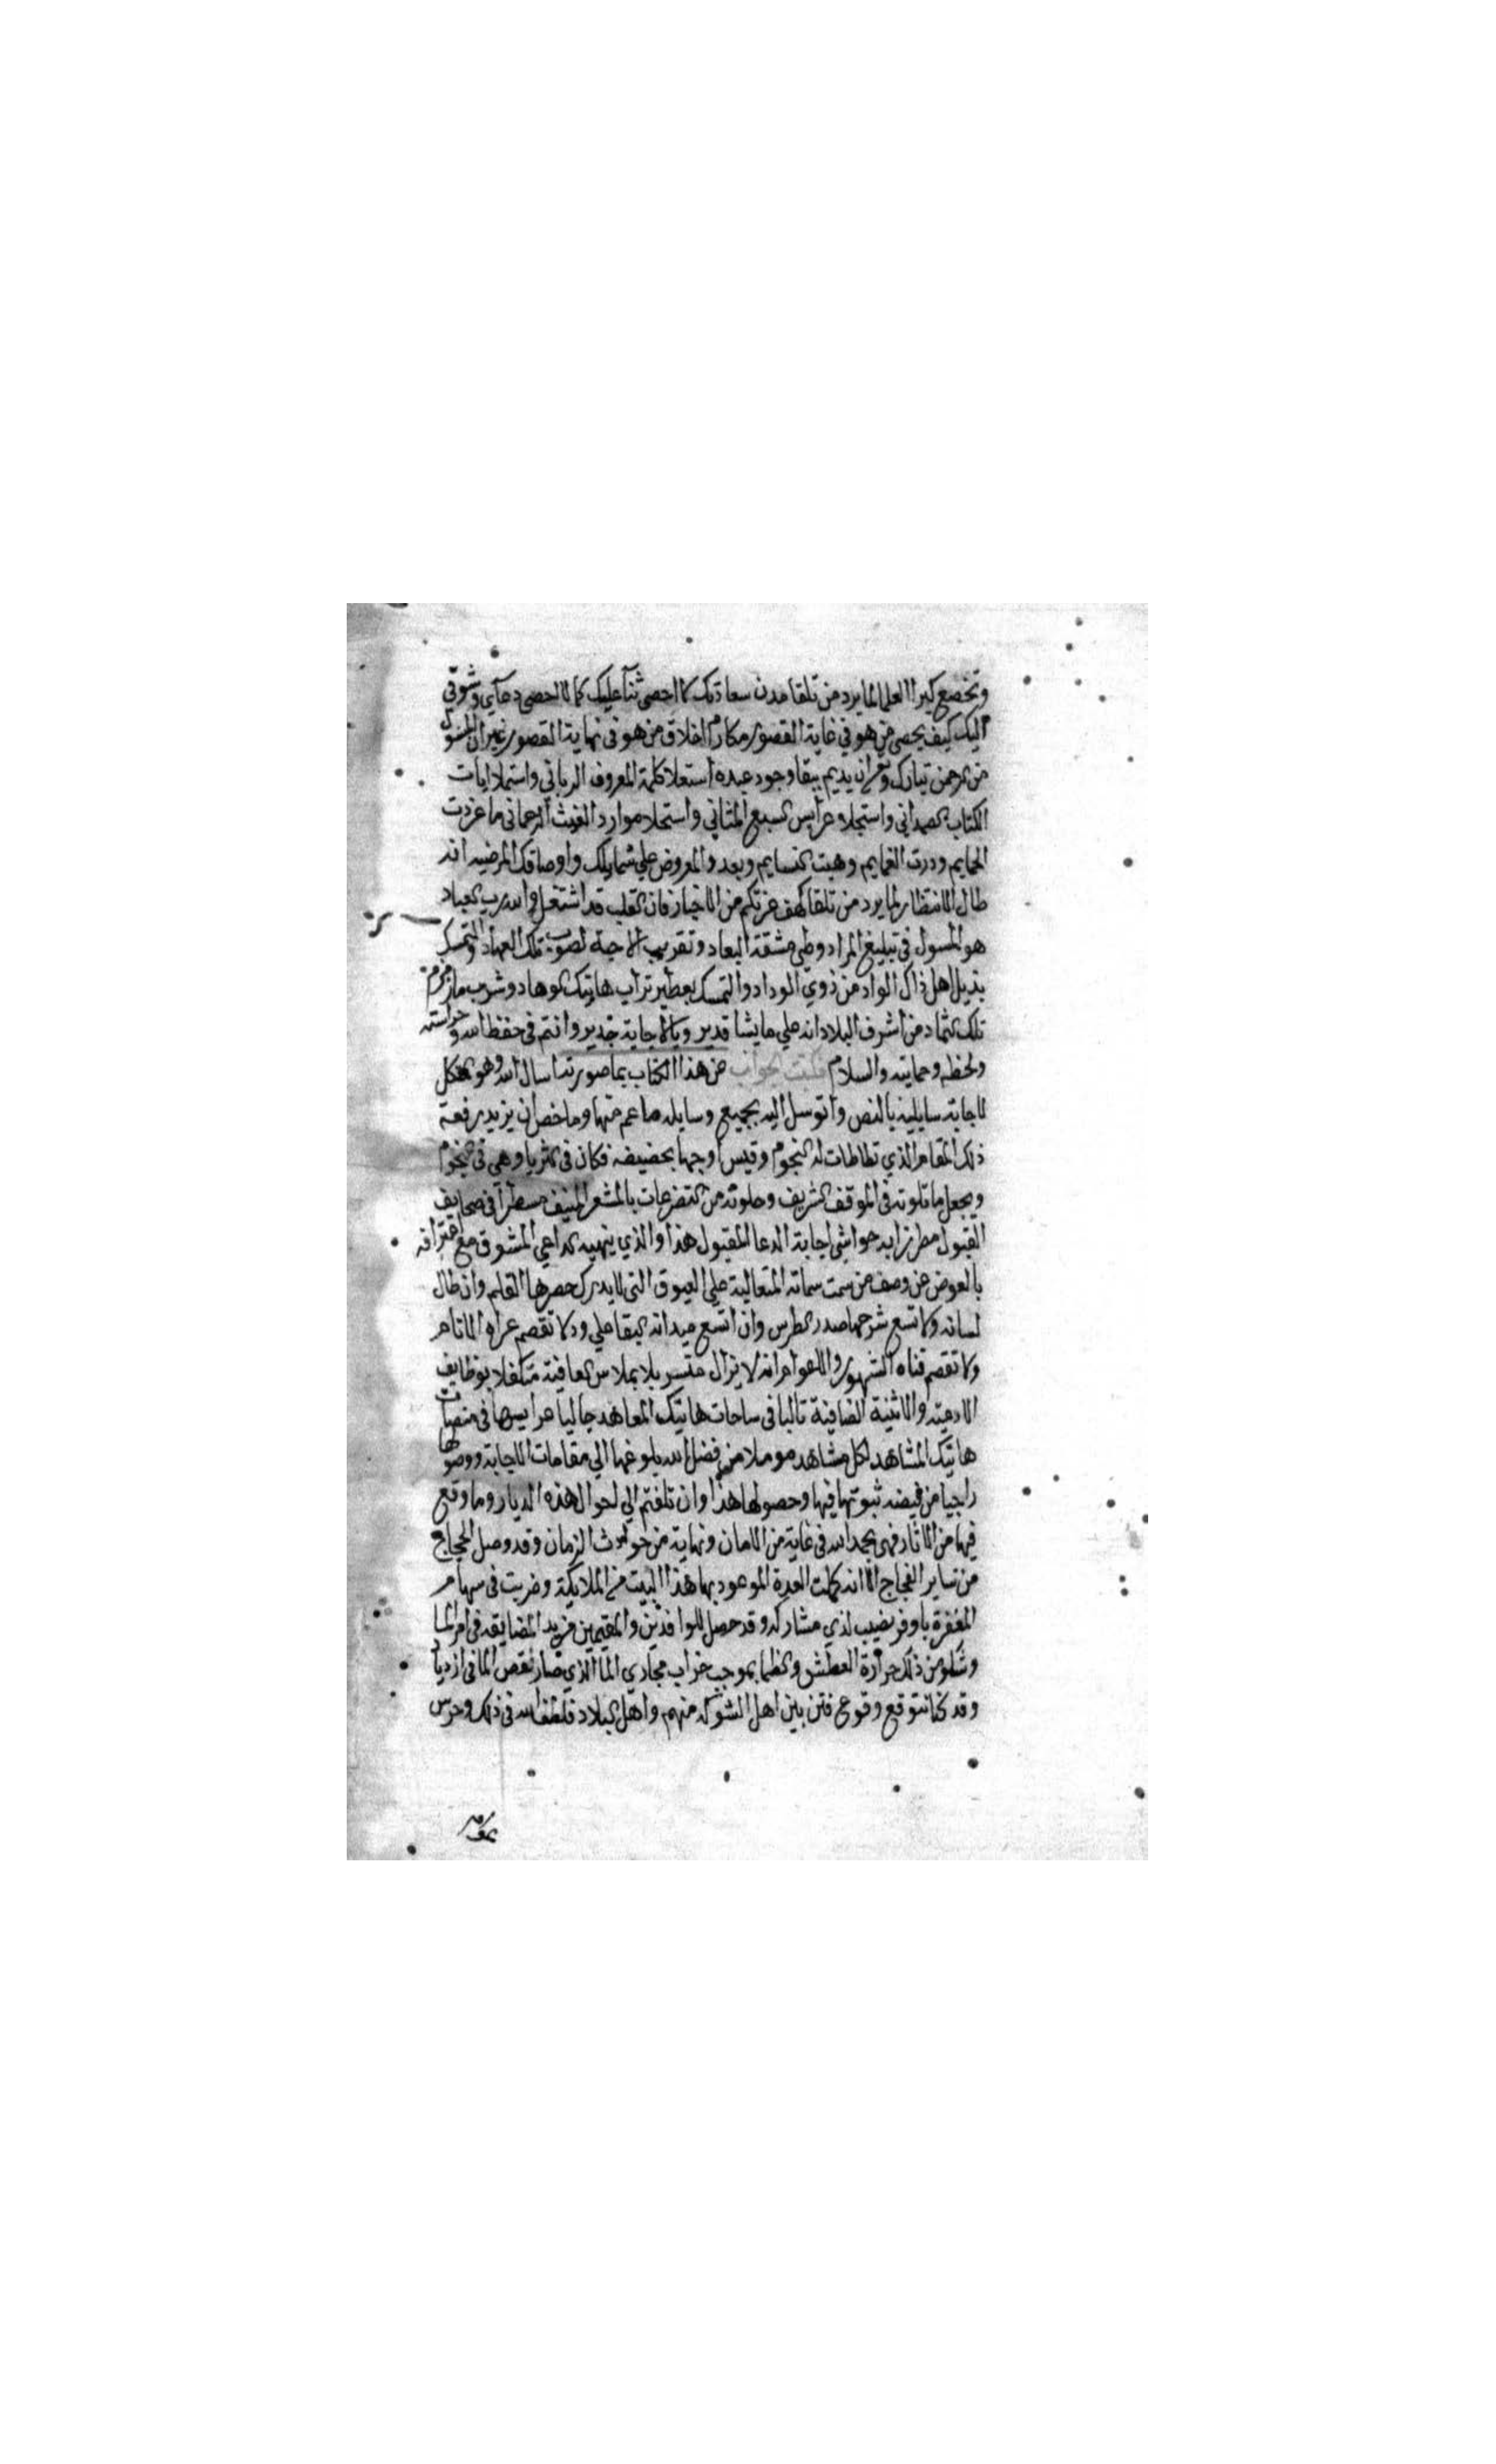 وتخضع كبرا العلما لما يرد من تلقا مدن سعادتك كما احصى ثنآ عليك كما لا احصى دعآي وشوقي
اليك كيف يحصى من هو في غاية القصور مكارم اخلاق من هو في نهاية القصور غير ان المسؤل
من الرحمن تبارك وتعالى ان يديم ببقا وجود عبده استعلا كلمة المعروف الرباني واستملا ايات
الكتاب الصمداني واستجلا عرايس السبع المثاني واستحلا موارد الغيث الرحماني ما غردت
الحمايم ودرت الغمايم وهبت النسايم وبعد والمعروض على شمايلك واوصافك المرضيه انه
طال الانتظار لما يرد من تلقا كهف عزتكم من الاخبار فان القلب قد اشتغل والله رب العباد
هو المسول في تبليغ المراد وطي مشقة البعاد وتقريب الاحبة لصوب تلك العهاد والتمسك
بذيل اهل ذاك الواد من ذوي الوداد والتمسك بعطير تراب هاتيك الوهاد وشرب ماء زمزم
تلك الثماد من اشرف البلاد انه على ما يشا قدير وبالاجابة جدير وانتم في حفظ الله وحراسته
ولحظه وحمايته والسلام فكتبت الجواب عن هذا الكتاب بما صورته اسال الله وهو المتكفل
لاجابة سايليه بالنص واتوسل اليه بجميع وسايله ما عم منها وما خص ان يزيد رفعة
ذلك المقام الذي تطاطات له النجوم وقيس اوجها بحضيضه فكان في الثريا وهي في التخوم
ويجعل ما تلوته في الموقف الشريف وجلوته من التضرعات بالمشعر المنيف مسطرا في صحايف
القبول مطرزا به حواشي اجابة الدعا المقبول هذا والذي ينهيه الداعي المشوق مع اعترافه
بالعوض عن وصف من سمت سماته المتعالية على العيوق التي لا يدرك حصرها القلم وان طال
لسانه ولا تسع شرحها صدر الطرس وان اتسع ميدانه البقا على ود لا تفصم عراه الايام
ولا تقصم قناه الشهور والاعوام انه لا يزال متسربلا بملابس العافية متكفلا بوظايف
الادعية والاثنية الضافية تاليا في ساحات هاتيك المعاهد جاليا عرايسها في منصات
هاتيك المشاهد لكل مشاهد موملا من فضل الله بلوغها الى مقامات الاجابة ووصولها
راجيا من فيضه ثبوتها فيها وحصولها هذا وان تلفتم الى احوال هذه الديار وما وقع
فيها من الاثار فهي بحمد الله في غاية من الامان ونهاية من حوادث الزمان وقد وصل الحجاج
من ساير الفجاج الا انه كملت العدة الموعود بها هذا البيت من الملايكة وضربت في سهام
المغفرة باوفر نصيب لذي مشاركه وقد حصل للوافدين والمقيمين مزيد المضايقه في امر الما
وشكو من ذلك حرارة العطش والظما بموجب خراب مجاري الما الذي صار نقص الما في ازدياد
وقد كنا نتوقع وقوع فتن بين اهل الشوكه منهم واهل البلاد فلطف الله في ذلك وحرس